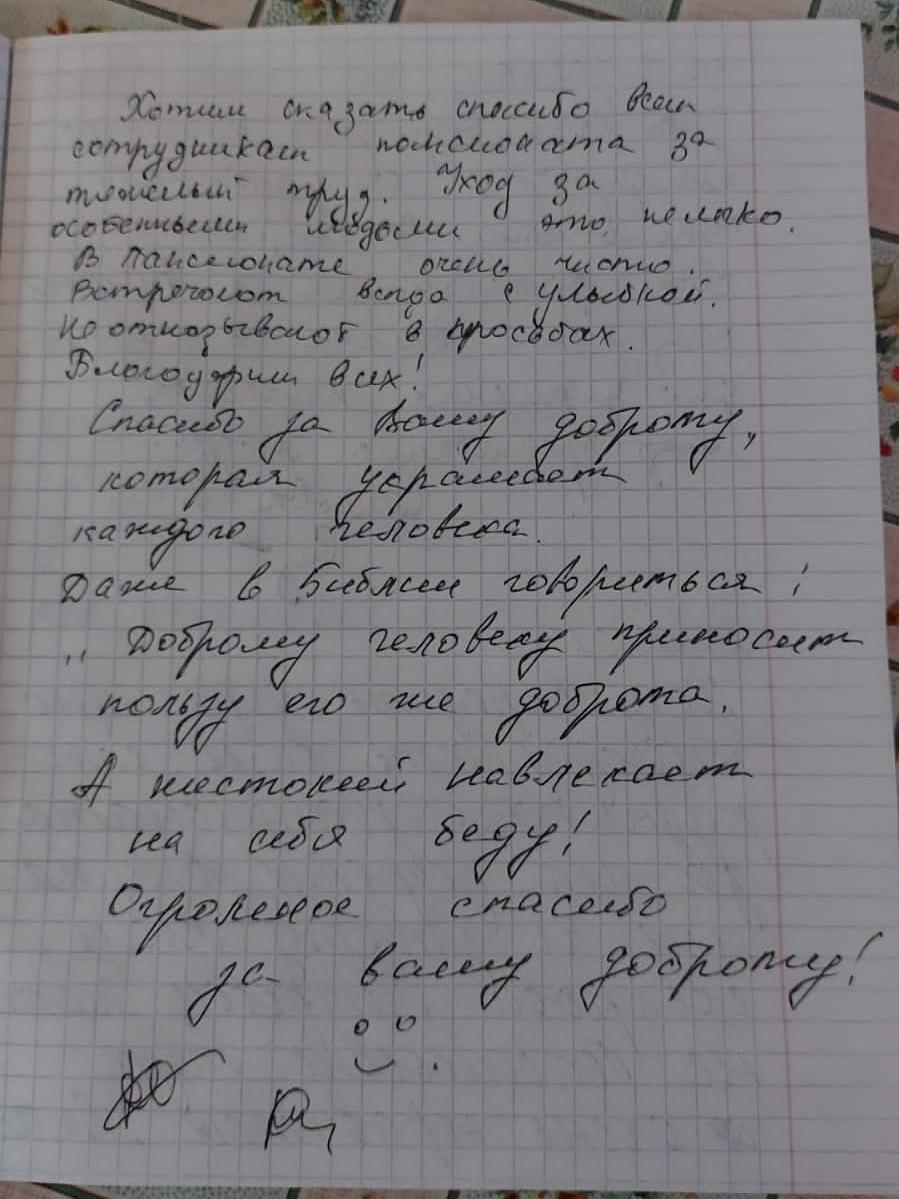 Хотим сказать спосибо всем
сотрудникам понсионата за
тяжёлый труд. Уход за
особенными людьми это нелегко.
В пансионате очень чисто.
Встречают всегда с улыбкой.
Не отказывают в просьбах.
Благодарим всех!
Спасибо за Вашу доброту,
которая украшает
каждого человека.
Даже в Библии говориться:
„Доброму человеку приносит
пользу его же доброта.
А жестокий навлекает
на себя беду!
Огромное спасибо
за вашу доброту!